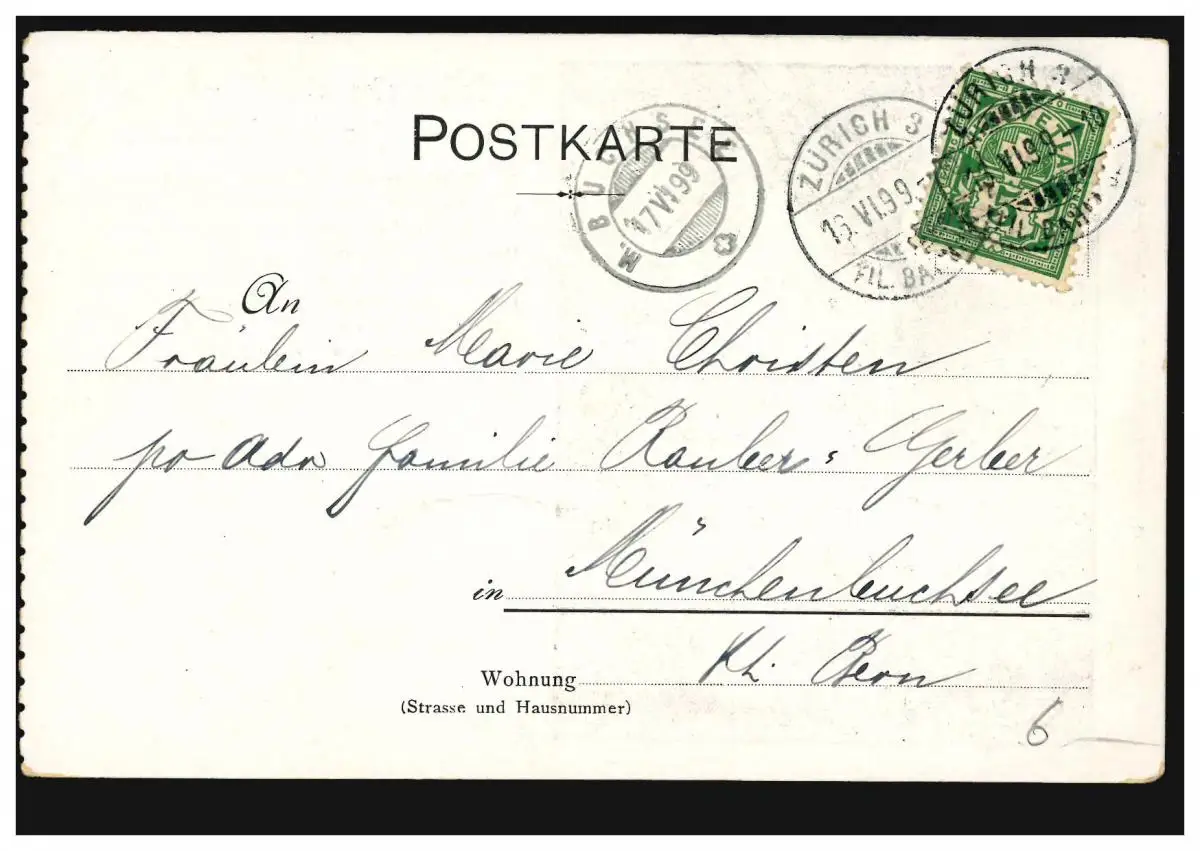 POSTKARTE
M. BUCHSEE
17 VI 99
ZÜRICH 3
16. VI. 99.
FIL. BA
ZÜRICH 3
VI. 99
An
Fräulein Marie Christen
po Ado Familie Rauber-Gerber
in Münchenbuchsee
Wohnung Kt. Bern
(Strasse und Hausnummer)
6 —